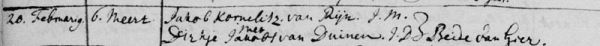 20. Februarij. 6. Meert. Jakob Kornelisz. van Rijn. J.M.
met
Dirkje Jakobs van Duinen. J.D. Beide van hier.